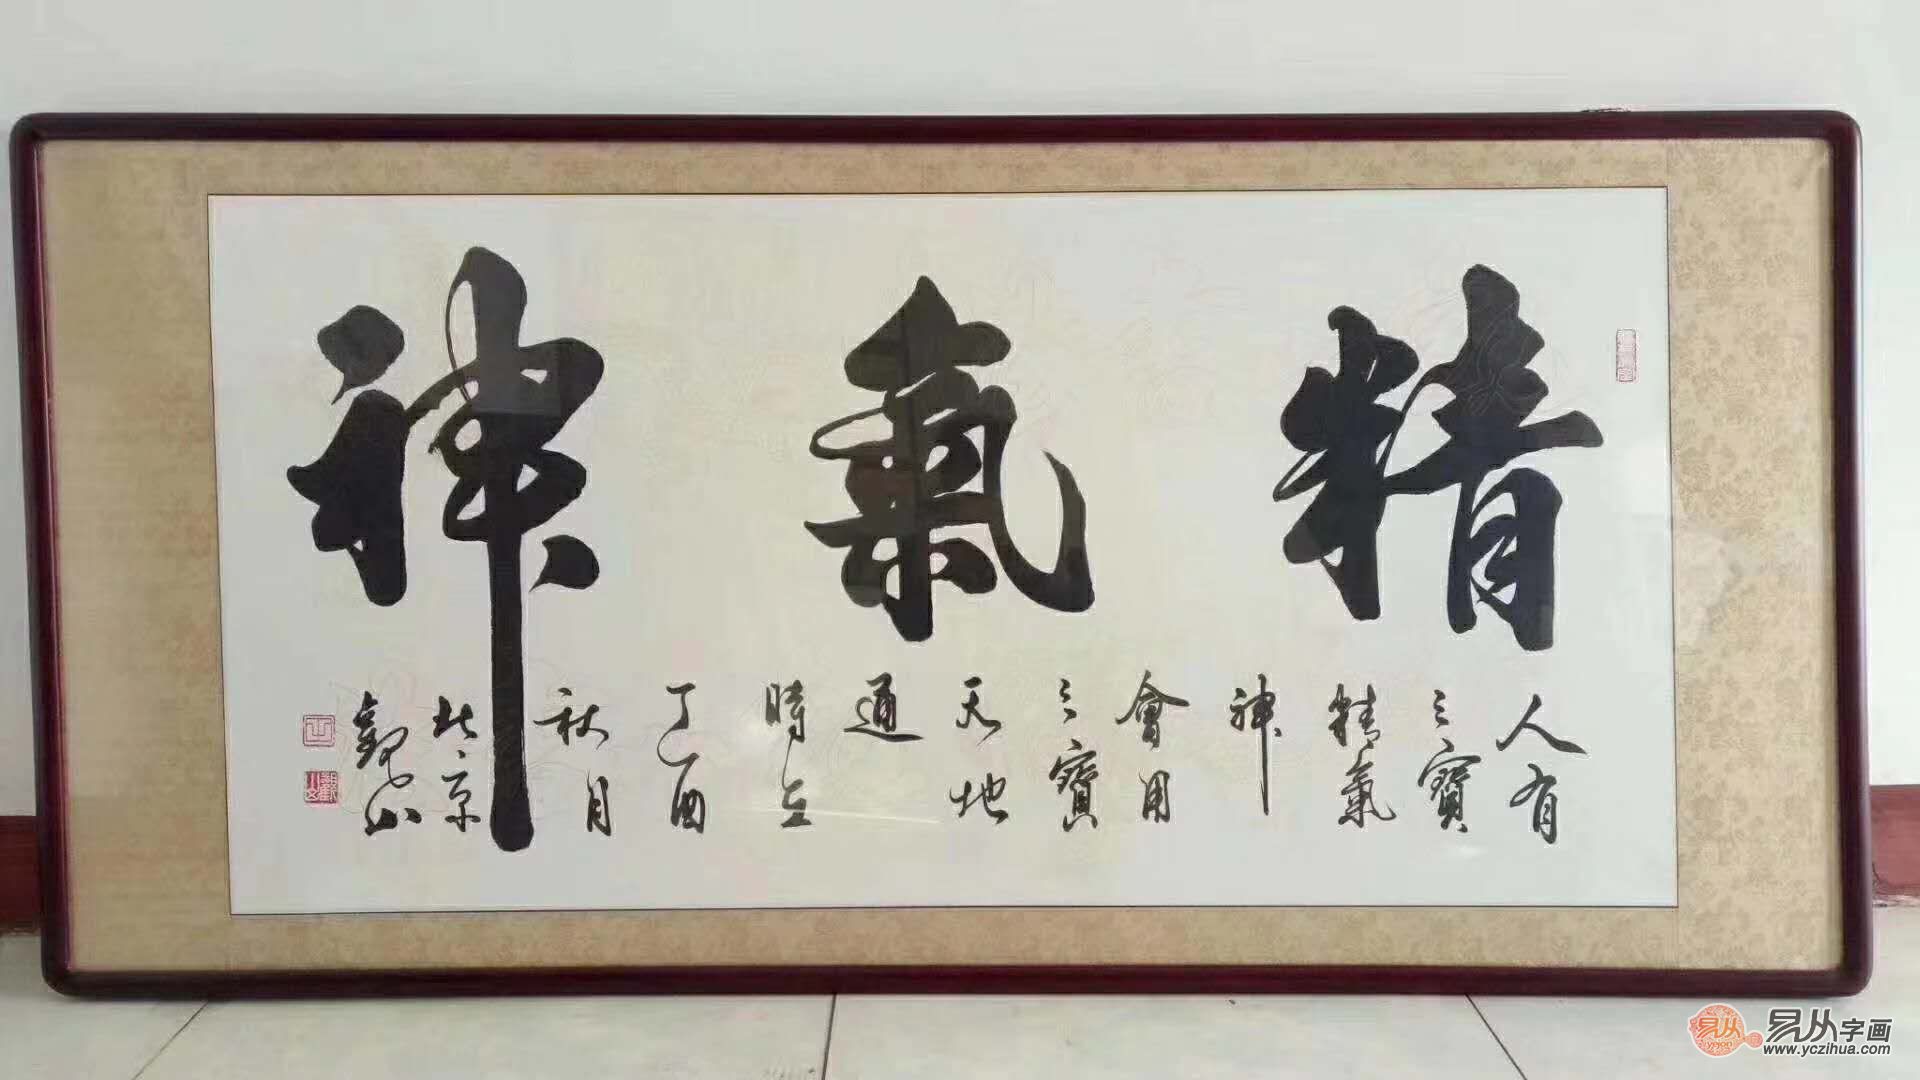 精氣神
人有
三寶
精氣
神
會用
三寶
天地
通
時在
丁酉
秋月
北京
觀山
易从字画
www.yczihua.com